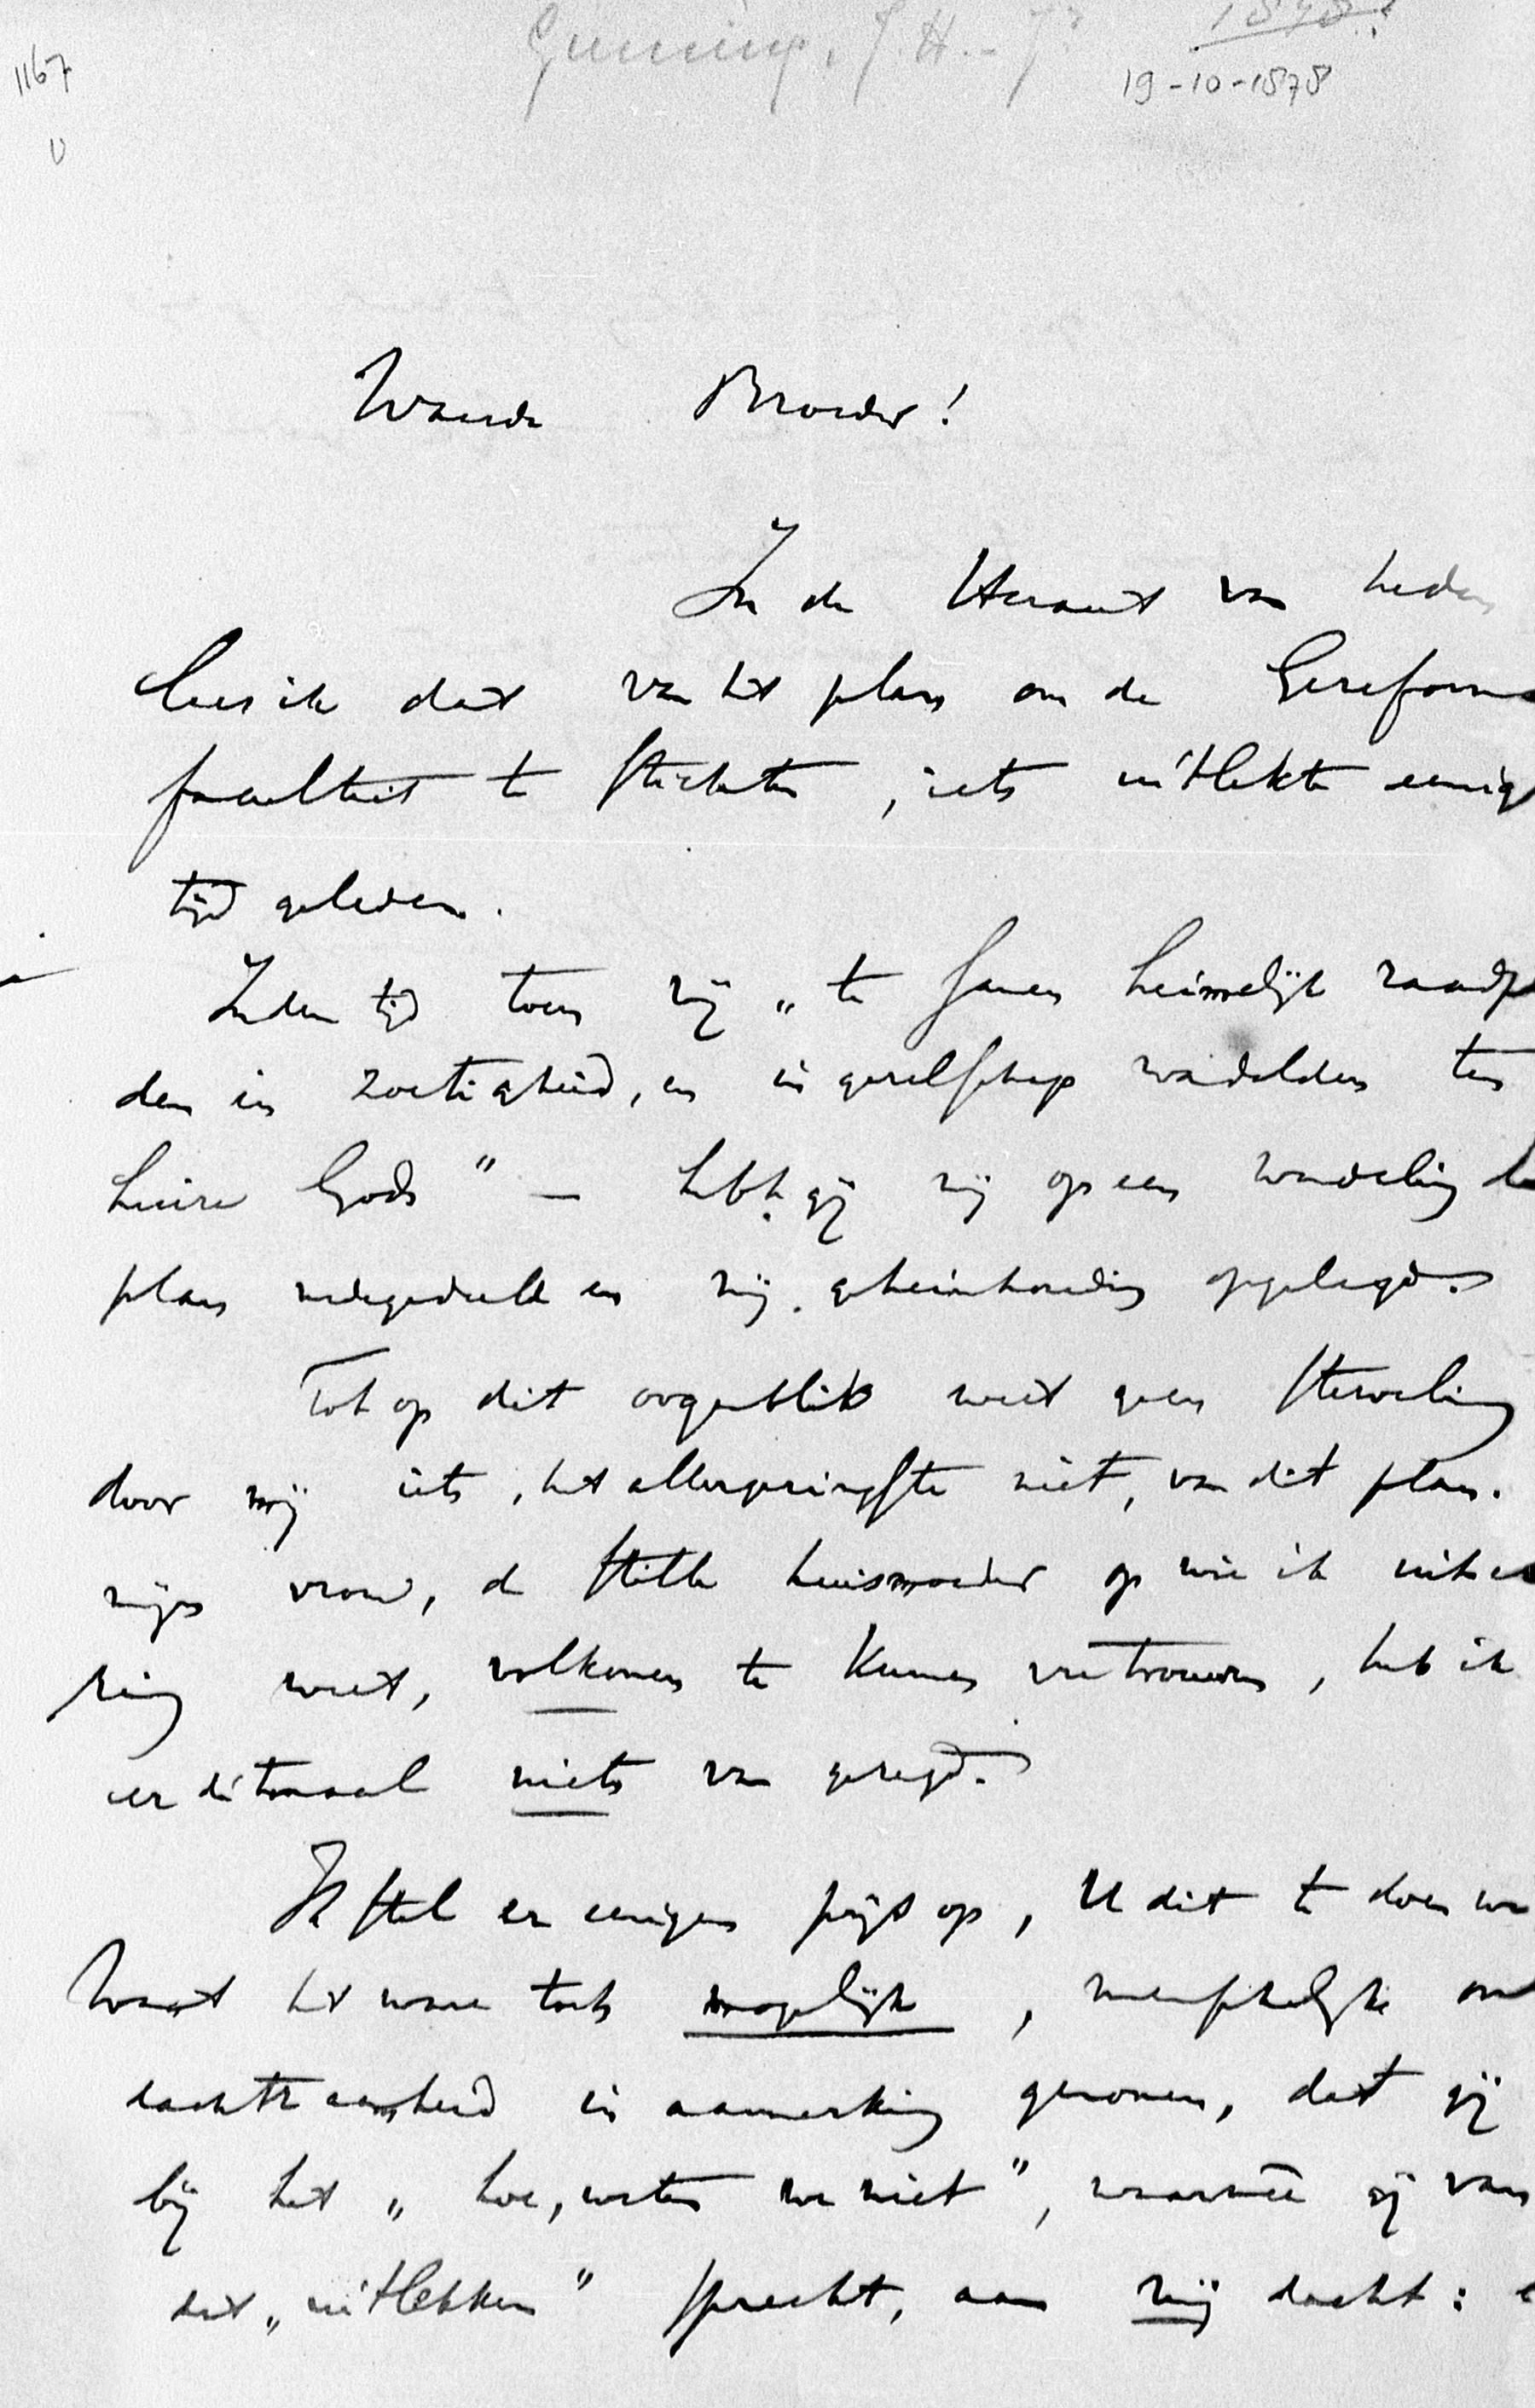 Gunning, J.H. Jr
1878?
1167
19-10-1878
U
Waarde Broeder!
In de Heraut van heden
lees ik dat van het plan om de Gereform
faculteit te stichten, iets uitlekte eenig
tijd geleden.
In den tijd toen wij „te samen heimelijk raadp
den in zoetigheid, en in gezelschap wandelden ten
huize Gods" — hebt gij mij op een wandeling
plan medegedeeld en mij geheimhouding opgelegd.
Tot op dit oogenblik weet geen sterveling
door mij iets, het allergeringste niet, van dit plan.
mijn vrouw, de stille huismoeder op wie ik uit er
ring weet, volkomen te kunnen vertrouwen, heb ik
er ditmaal niets van gezegd.
Ik stel er eenigen prijs op, U dit te doen we
Want het ware toch mogelijk, menschelijke
dachtzaamheid in aanmerking genomen, dat gij
bij het „hoe, weten we niet", waarmeê gij van
dat „uitlekken" spreekt, aan mij dacht: